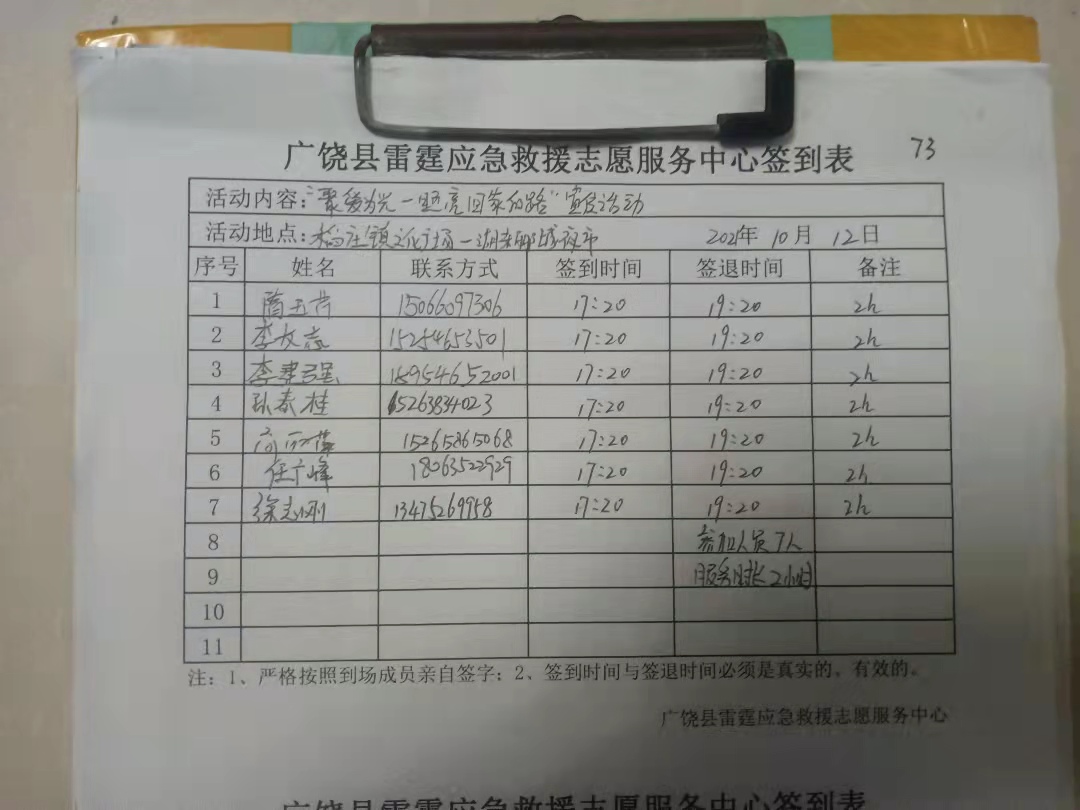 广饶县雷霆应急救援志愿服务中心签到表 73
活动内容：“聚爱为光一点亮回家的路”宣传活动
活动地点： 镇文化广场一湖 夜市 2021年 10月 12日
序号 姓名 联系方式 签到时间 签退时间 备注
1 15066097306 17:20 19:20 2h
2 李 15254653501 17:20 19:20 2h
3 李建强 18954652001 17:20 19:20 2h
4 春桂 15263834023 17:20 19:20 2h
5 15265865068 17:20 19:20 2h
6 任广峰 18063522929 17:20 19:20 2h
7 徐志刚 13475269958 17:20 19:20 2h
8 参加人员7人
9 服务时长2小时
10
11
注：1、严格按照到场成员亲自签字；2、签到时间与签退时间必须是真实的，有效的。
广饶县雷霆应急救援志愿服务中心
广饶县雷霆应急救援志愿服务中心签到表